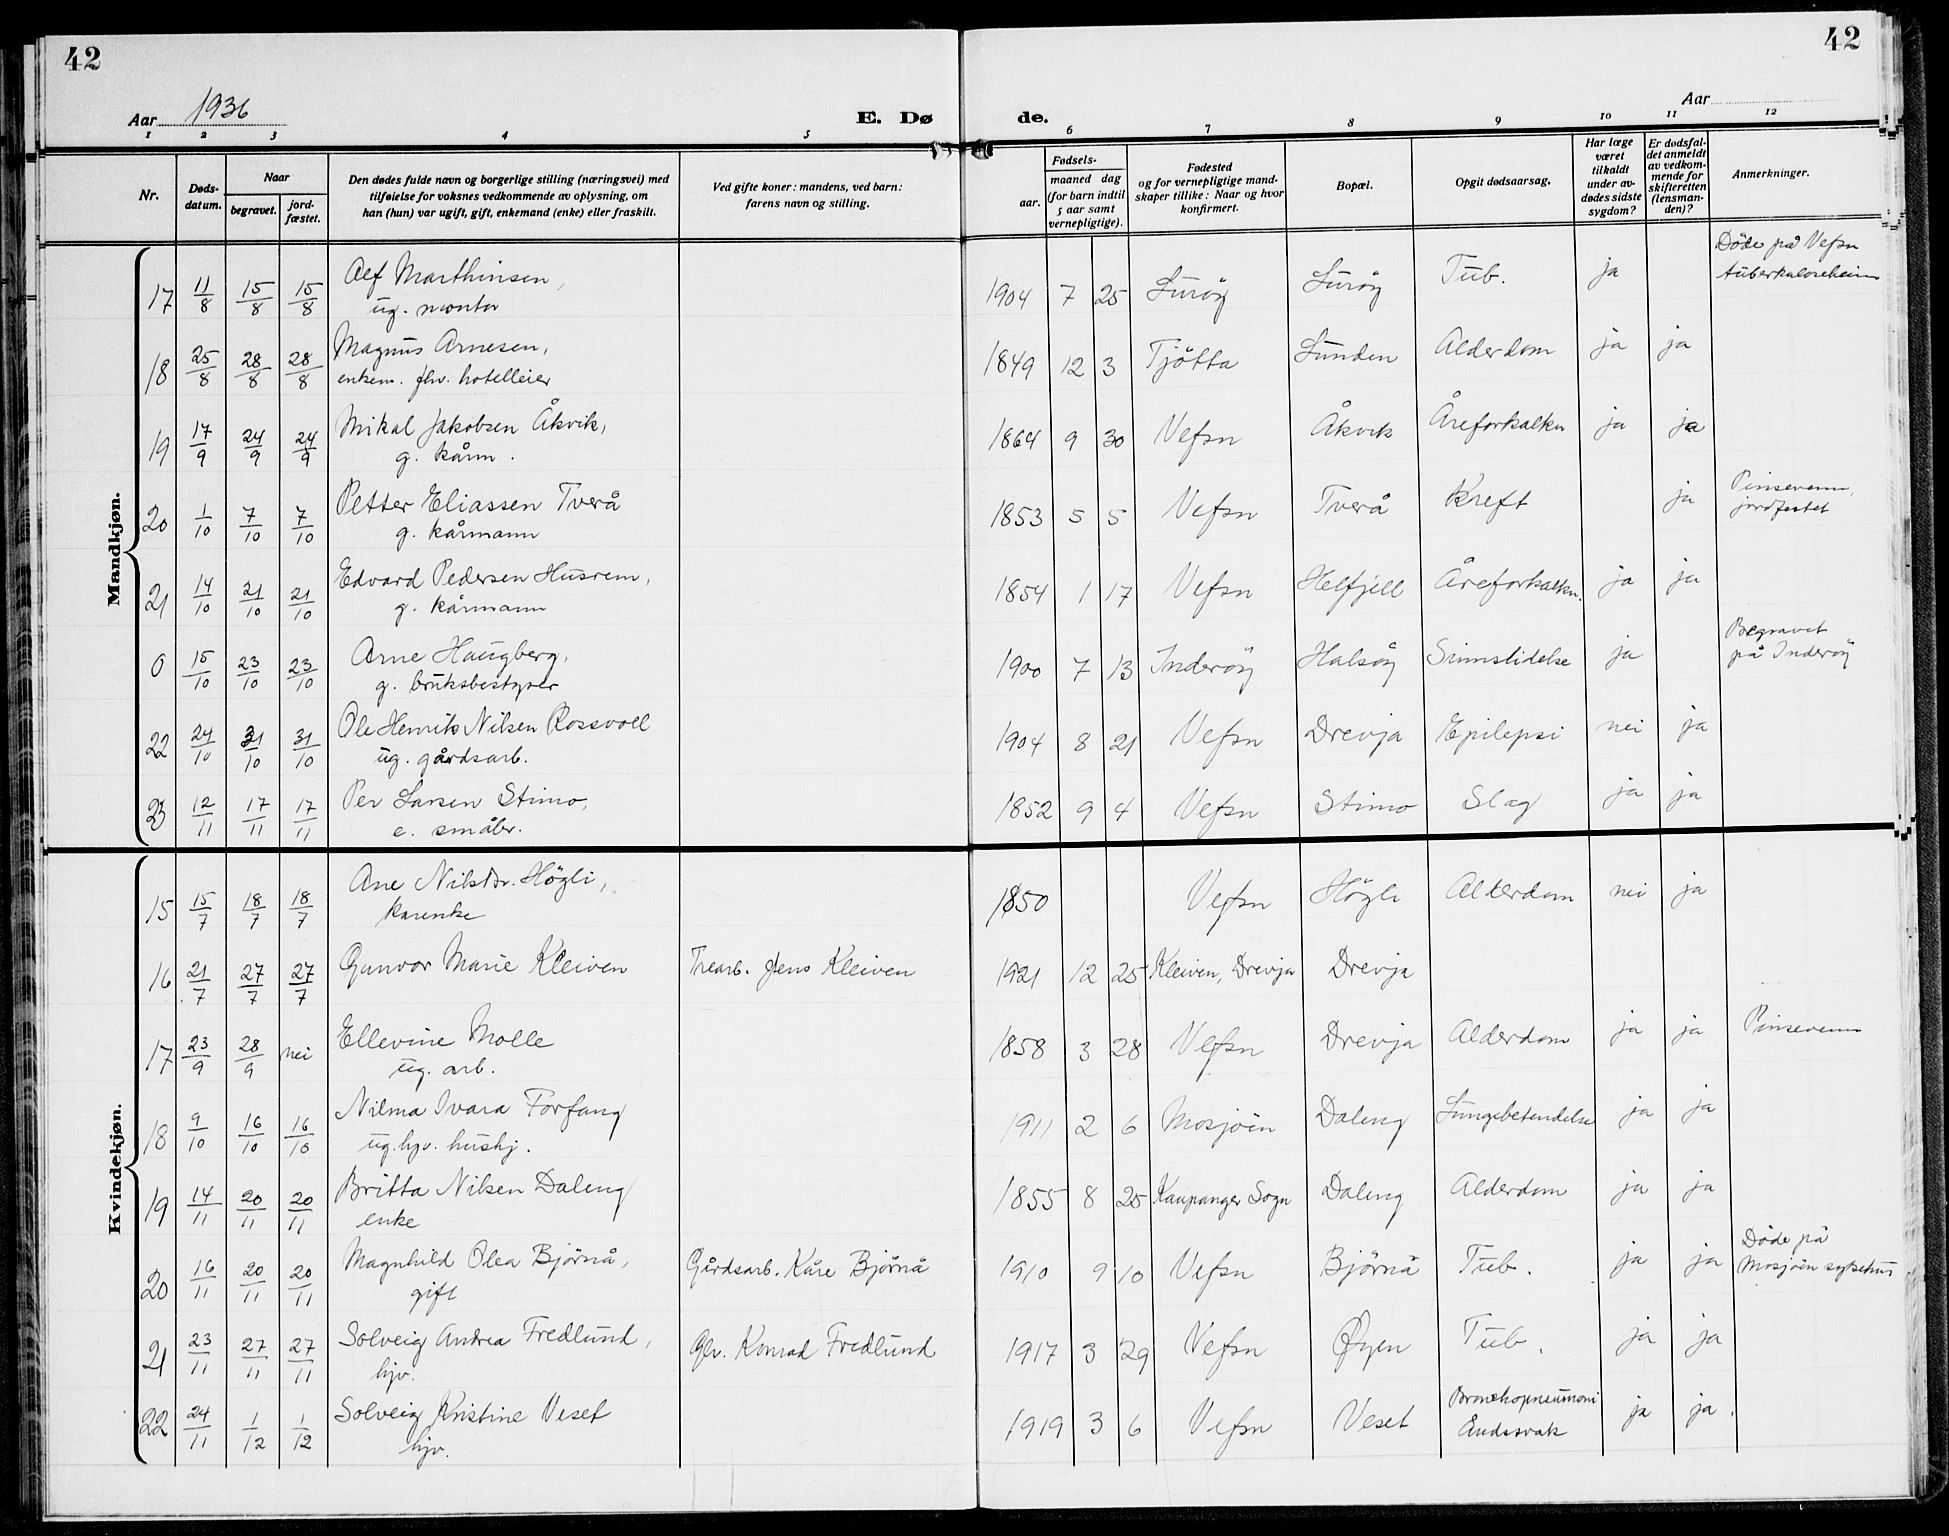 42
42
Aar 1936
E. Dø
de.
Aar
1 2 3 4 5 6 7 8 9 10 11 12
Nr.
Døds-
datum.
Naar
begravet.
jord-
fæstet.
Den dødes fulde navn og borgerlige stilling (næringsvei) med
tilføielse for voksnes vedkommende av oplysning, om
han (hun) var ugift, gift, enkemand (enke) eller fraskilt.
Ved gifte koner: mandens, ved barn:
farens navn og stilling.
Fødsels-
aar.
maaned dag
(for barn indtil
5 aar samt
vernepligtige).
Fødested
og for vernepligtige mand-
skaper tillike: Naar og hvor
konfirmert.
Bopæl.
Opgit dødsaarsag.
Har læge
været
tilkaldt
under av-
dødes sidste
sygdom?
Er dødsfal-
det anmeldt
av vedkom-
mende for
skifteretten
(lensman-
den)?
Anmerkninger.
Mandkjøn.
17 11/8 15/8 15/8 Alf Marthinsen, 1904 7 25 Lurøy Lurøy Tub. ja Döde på Vefsn
ug. montør tuberkuloseheim
18 25/8 28/8 28/8 Magnus Arnesen, 1849 12 3 Tjötta Lunden Alderdom ja ja
enkem. fhv. hotelleier
19 17/9 24/9 24/9 Mikal Jakobsen Åkvik, 1864 9 30 Vefsn Åkvik Åreforkalkn ja ja
g. kårm.
20 1/10 7/10 7/10 Petter Eliassen Tverå 1853 5 5 Vefsn Tverå Kreft ja Pinsevenn,
g. kårmann jordfestet
21 14/10 21/10 21/10 Edvard Pedersen Husrem, 1854 1 17 Vefsn Helfjell Åreforkalkn. ja ja
g. kårmann
0 15/10 23/10 23/10 Arne Haugberg, 1900 7 13 Inderöy Halsöy Sinnslidelse ja Begravet
g. bruksbestyrer på Inderöy
22 24/10 31/10 31/10 Ole Henrik Nilsen Rossvoll 1904 8 21 Vefsn Drevja Epilepsi nei ja
ug. gårdsarb.
23 12/11 17/11 17/11 Per Larsen Stimo, 1852 9 4 Vefsn Stimo Slag ja ja
e. småbr.
Kvindekjøn.
15 15/7 18/7 18/7 Ane Nilsdr. Högli, 1850 Vefsn Högli Alderdom nei ja
kårenke
16 21/7 27/7 27/7 Gunvor Marie Kleiven Trearb. Jens Kleiven 1921 12 25 Kleiven, Drevja Drevja
17 23/9 28/9 nei Ellevine Molle 1858 3 28 Vefsn Drevja Alderdom ja ja Pinsevenn
ug. arb.
18 9/10 16/10 16/10 Nilma Ivara Forfang 1911 2 6 Mosjöen Daleng Lungebetendelse ja ja
ug. hjv. hushj.
19 14/11 20/11 20/11 Britta Nilsen Daleng 1855 8 25 Kaupanger Sogn Daleng Alderdom ja ja
enke
20 16/11 20/11 20/11 Magnhild Olea Björnå, Gårdsarb. Kåre Björnå 1910 9 10 Vefsn Björnå Tub. ja ja Döde på
gift Mosjöen sykehus
21 23/11 27/11 27/11 Solveig Andrea Fredlund, Glv. Konrad Fredlund 1917 3 29 Vefsn Øyen Tub. ja ja
hjv.
22 24/11 1/12 1/12 Solveig Kristine Veset 1919 3 6 Vefsn Veset Bronchopneumoni ja ja.
hjv. Åndssvak